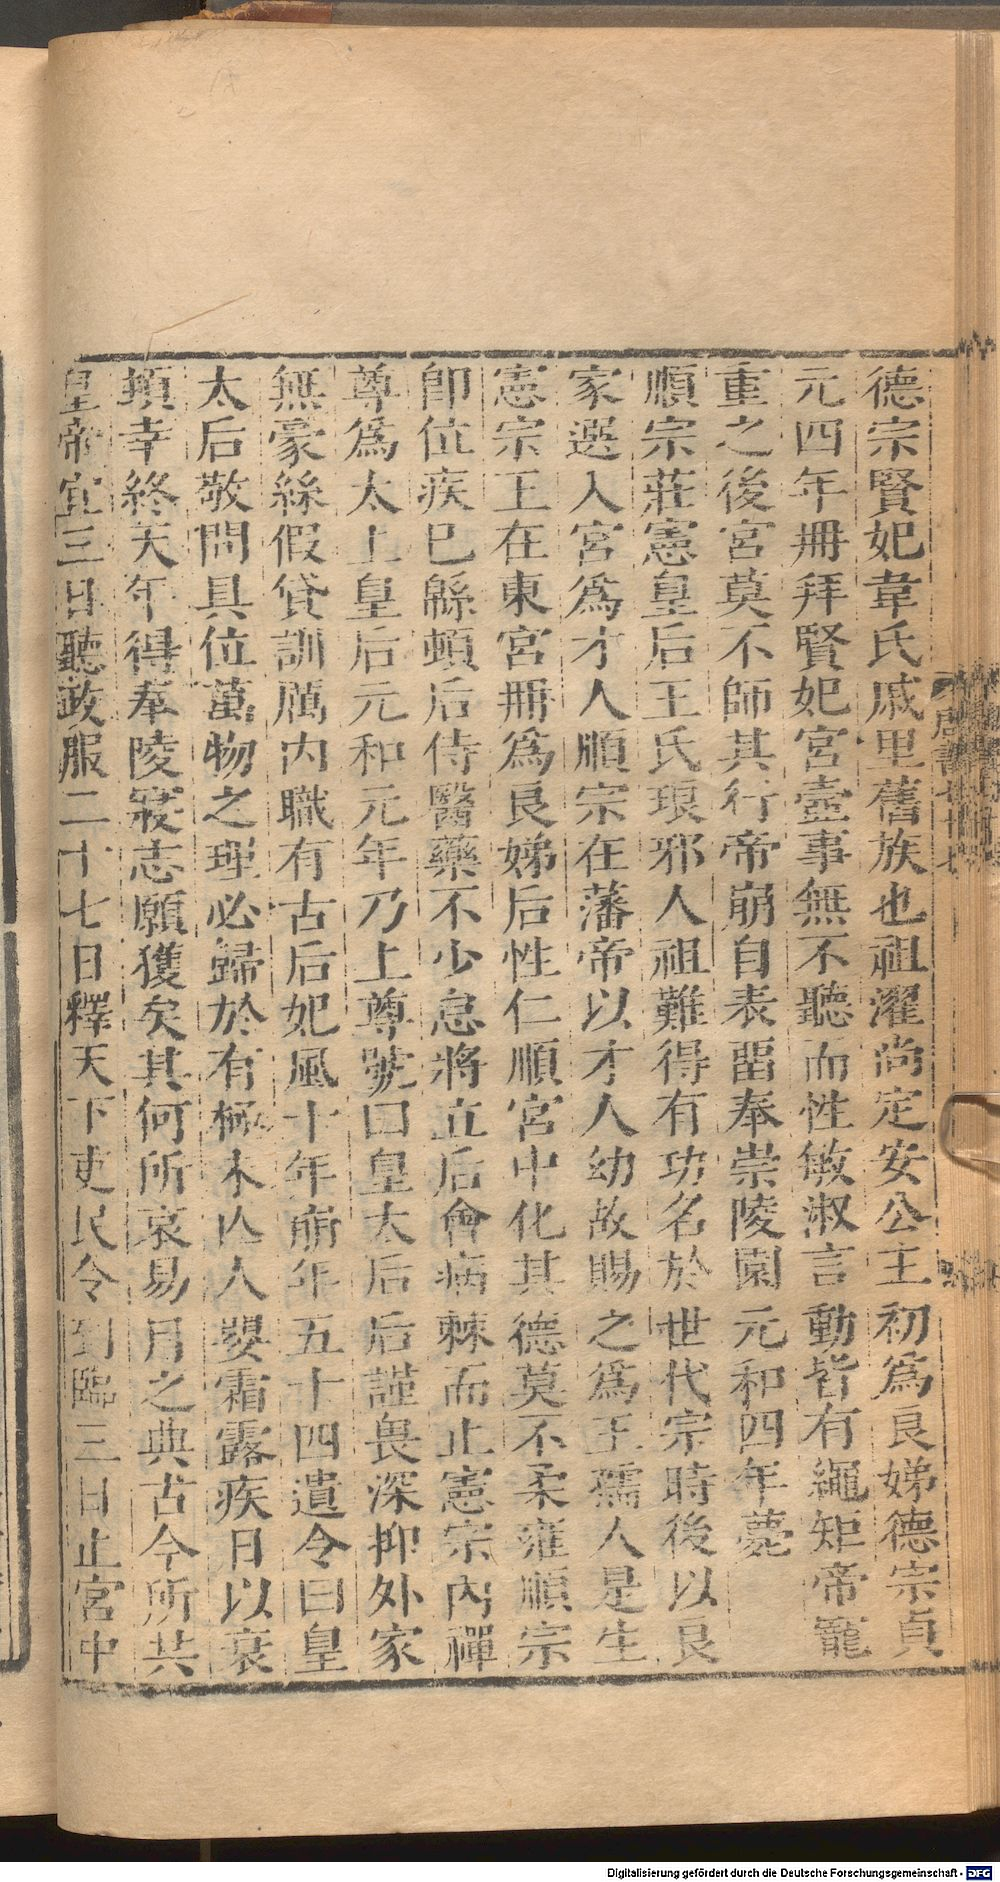 德宗賢妃韋氏戚里舊族也祖濯尚定安公主初爲良娣德宗貞
元四年冊拜賢妃宮壼事無不聽而性敏淑言動皆有繩矩帝寵
重之後宮莫不師其行帝崩自表畱奉崇陵園元和四年薨
順宗莊憲皇后王氏琅邪人祖難得有功名於世代宗時後以良
家選入宮爲才人順宗在藩帝以才人幼故賜之爲王孺人是生
憲宗王在東宮冊爲良娣后性仁順宮中化其德莫不柔雍順宗
卽位疾已緜頓后侍醫藥不少怠將立后會病棘而止憲宗內禪
尊爲太上皇后元和元年乃上尊號曰皇太后后謹畏深抑外家
無豪絲假貸訓厲內職有古后妃風十年崩年五十四遺令曰皇
太后敬問具位萬物之理必歸於有極未亡人嬰霜露疾日以衰
頓幸終天年得奉陵寢志願獲矣其何所哀易月之典古今所共
皇帝宜三日聽政服二十七日釋天下吏民令到臨三日止宮中
唐書七十七
Digitalisierung gefördert durch die Deutsche Forschungsgemeinschaft - DFG